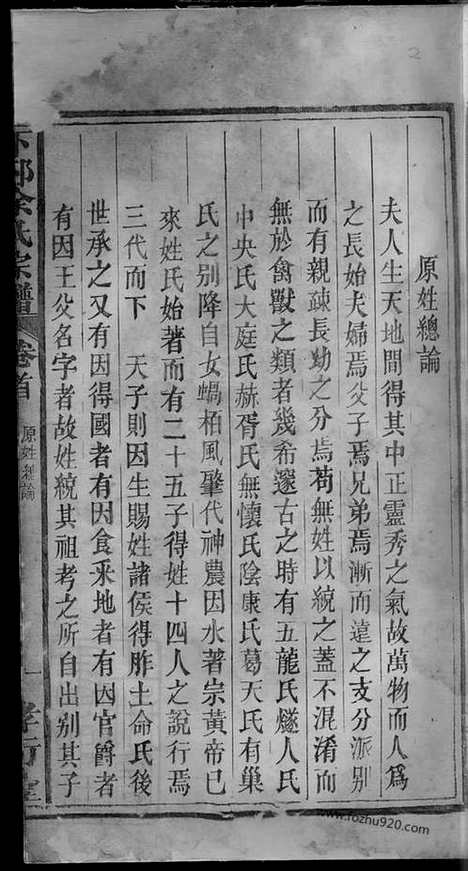 原姓總論
夫人生天地間得其中正靈秀之氣故萬物而人爲
之長始夫婦焉父子焉兄弟焉漸而遠之支分派別
而有親疎長幼之分焉苟無姓以統之蓋不混淆而
無於禽獸之類者幾希邃古之時有五龍氏燧人氏
中央氏大庭氏赫胥氏無懷氏陰康氏葛天氏有巢
氏之別降自女媧柏風肇代神農因水著宗黃帝已
來姓氏始著而有二十五子得姓十四人之說行焉
三代而下 天子則因生賜姓諸侯得胙土命氏後
世承之又有因得國者有因食釆地者有因官爵者
有因王父名字者故姓統其祖考之所自出別其子
下邳余氏宗譜 卷首 原姓總論 一 孝 堂
www.fozhu920.com
2